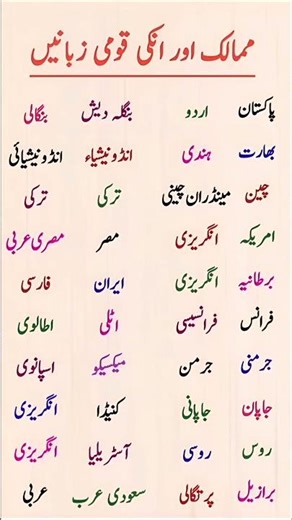 ممالک اور انکی قومی زبانیں
پاکستان اردو بنگلہ دیش بنگالی
بھارت ہندی انڈونیشیاء انڈونیشیائی
چین مینڈران چینی ترکی ترکی
امریکہ انگریزی مصر مصری عربی
برطانیہ انگریزی ایران فارسی
فرانس فرانسیسی اٹلی اطالوی
جرمنی جرمن میکسیکو اسپانوی
جاپان جاپانی کنیڈا انگریزی
روس روسی آسٹریلیا انگریزی
برازیل پرتگالی سعودی عرب عربی